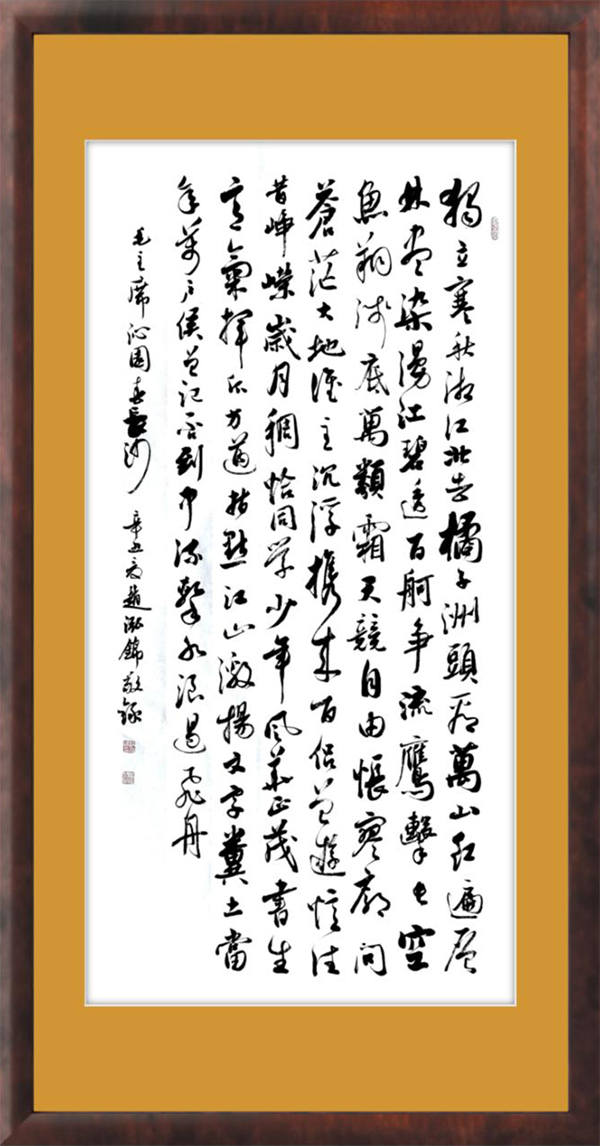 獨立寒秋湘江北去橘子洲頭看萬山紅遍層
林盡染漫江碧透百舸爭流鷹擊長空
魚翔淺底萬類霜天競自由悵寥廓問
蒼茫大地誰主沉浮携來百侶曾遊憶往
昔崢嶸歲月稠恰同学少年風華正茂書生
意氣揮斥方遒指點江山激揚文字糞土當
年萬戶侯曾記否到中流擊水浪遏飛舟
毛主席沁園春長沙 辛丑夏趙泓錦敬錄